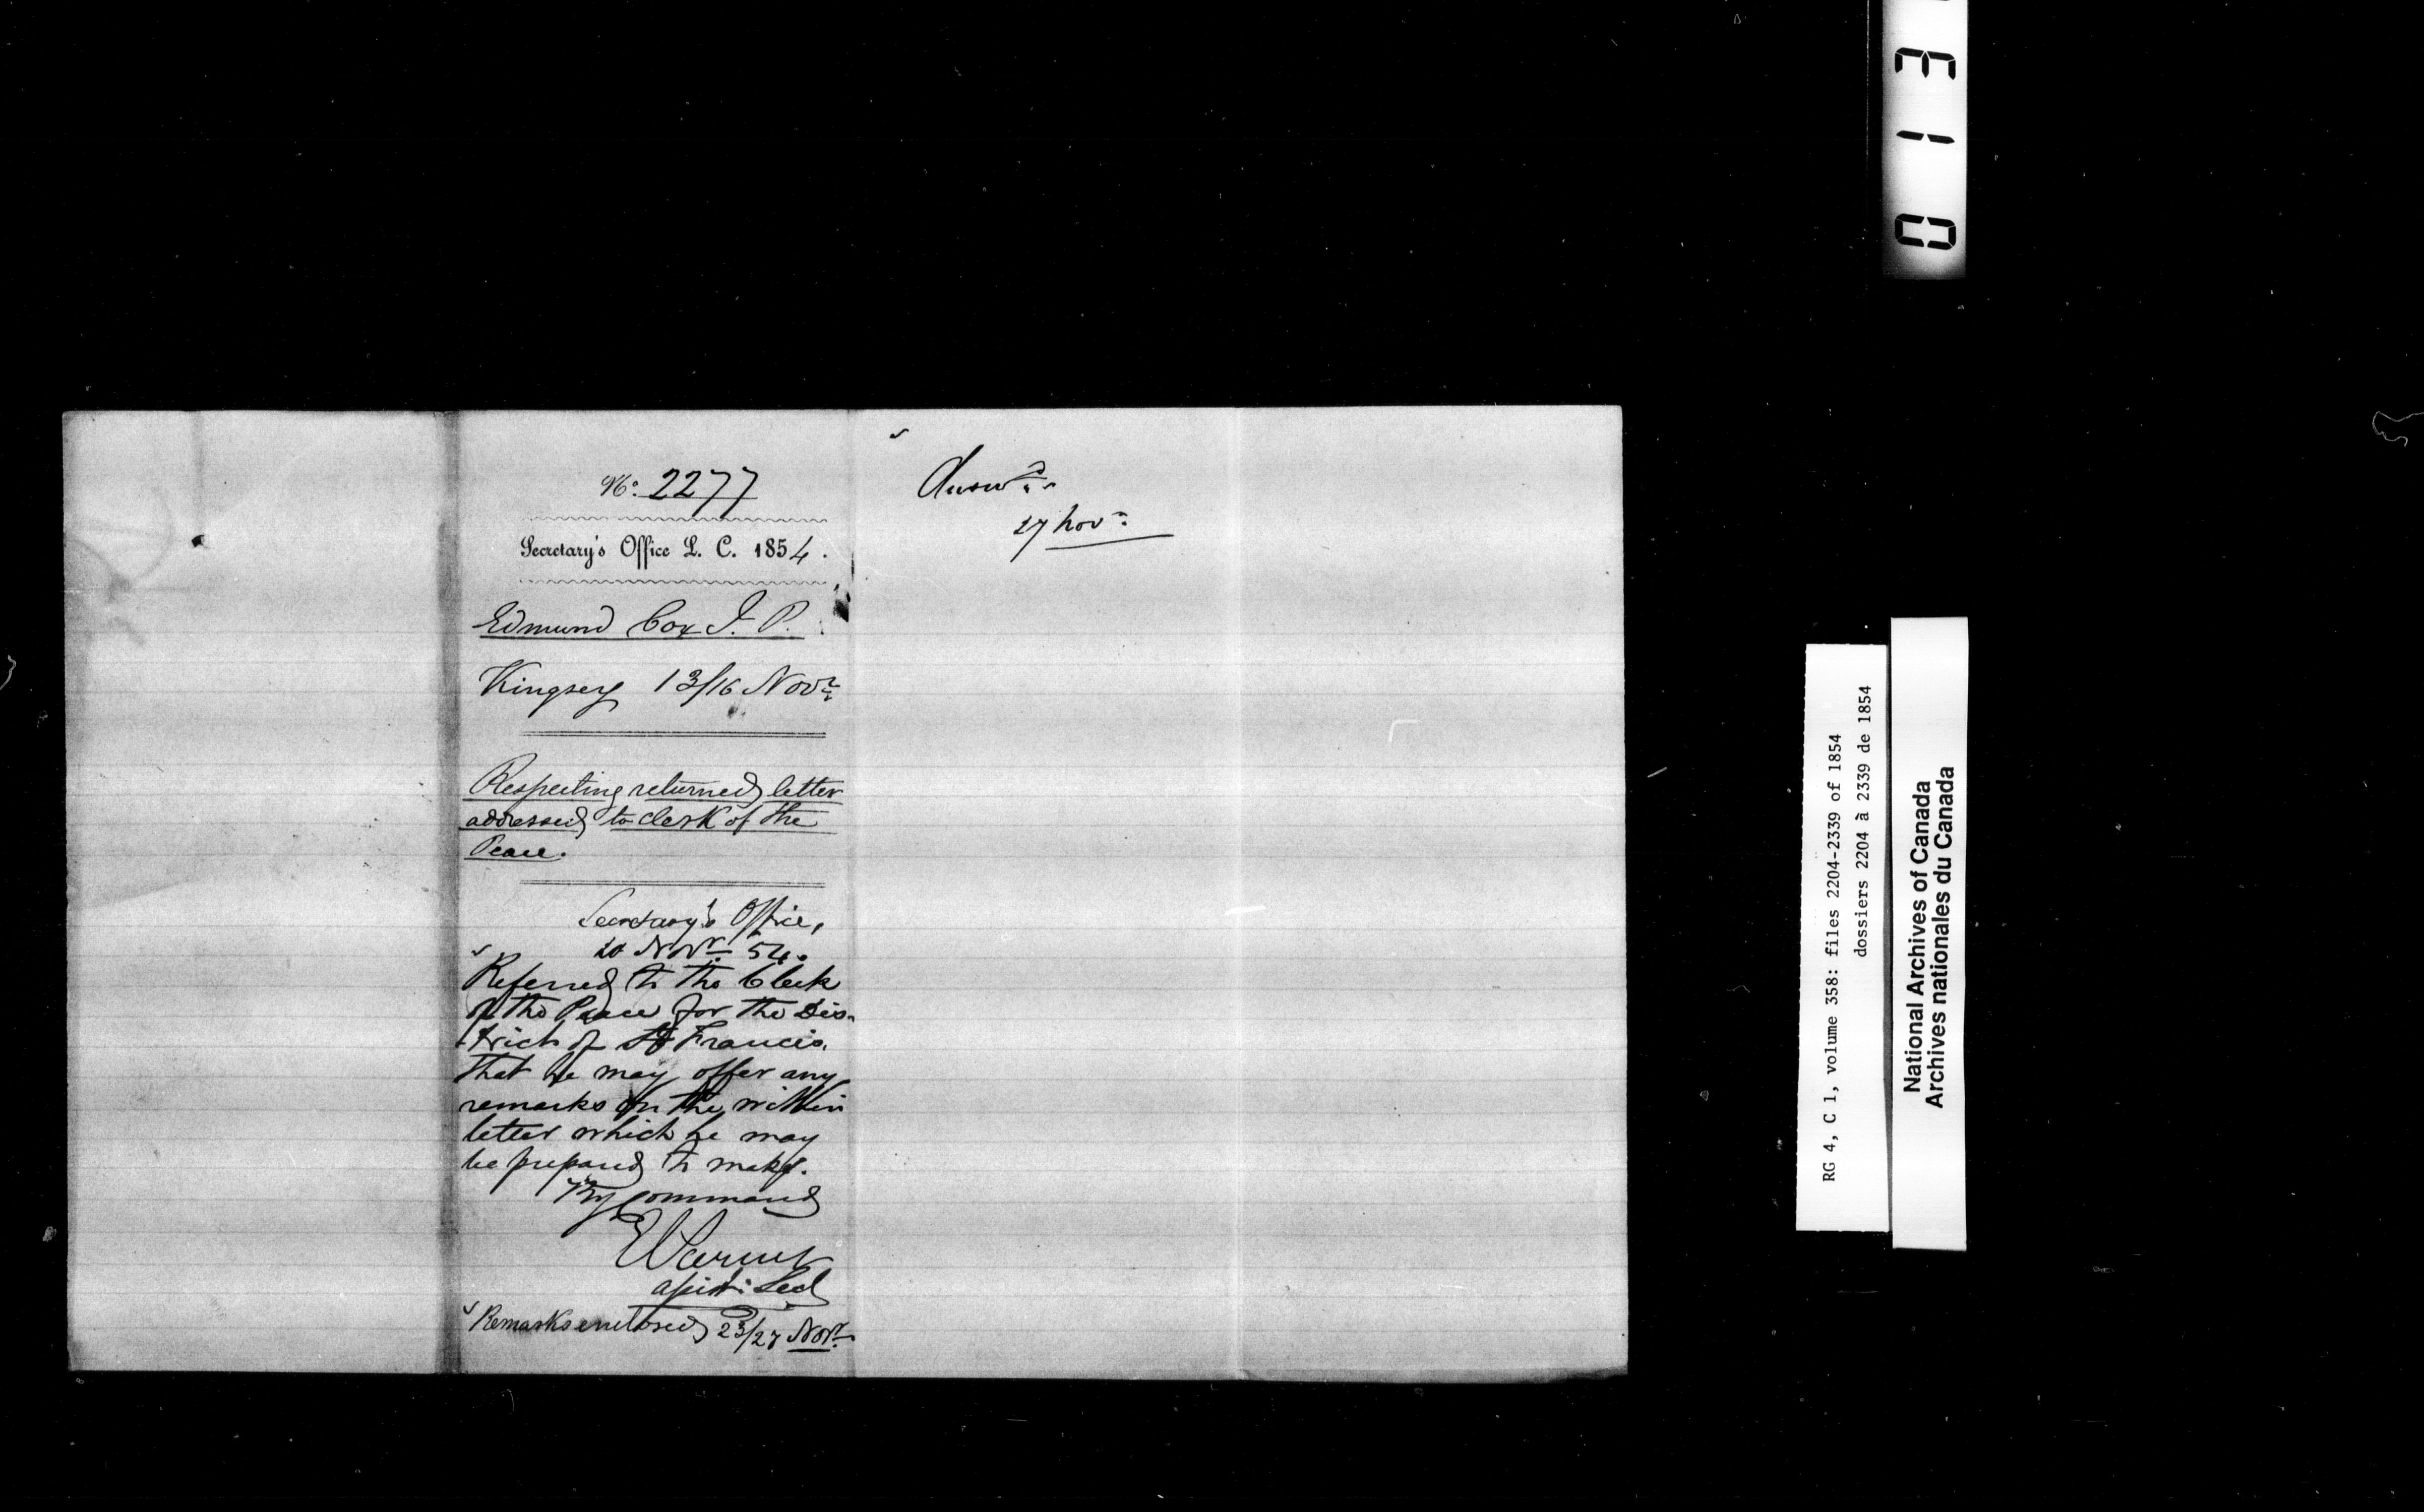 No. 2277
Secretary's Office L. C. 1854.
Edmund Cox J. P.
Kingsey 13/16 Novr.
Respecting returned letter
addressed to Clerk of the
Peace.
Secretary's Office,
20 Novr. 54.
Referred to the Clerk
of the Peace for the Dis-
trict of St Francis,
that he may offer any
remarks on the within
letter which he may
be prepared to make.
By Command
E Parent
Assist: Sec
Remarks enclosed 23/27 Novr.
Answd.
27 Novr.
013
RG 4, C 1, volume 358: files 2204-2339 of 1854
dossiers 2204 à 2339 de 1854
National Archives of Canada
Archives nationales du Canada